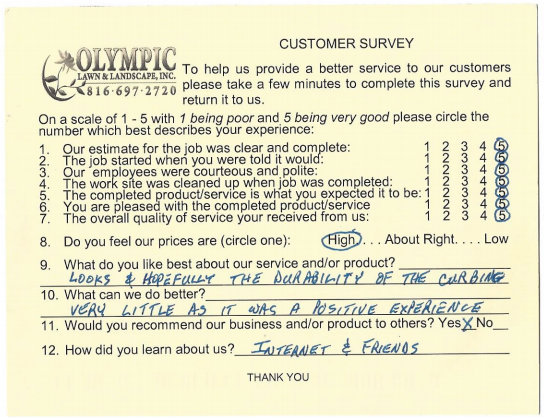 CUSTOMER SURVEY
OLYMPIC
LAWN & LANDSCAPE, INC.
816·697·2720
To help us provide a better service to our customers
please take a few minutes to complete this survey and
return it to us.
On a scale of 1 - 5 with 1 being poor and 5 being very good please circle the
number which best describes your experience:
1. Our estimate for the job was clear and complete: 1 2 3 4 5
2. The job started when you were told it would: 1 2 3 4 5
3. Our employees were courteous and polite: 1 2 3 4 5
4. The work site was cleaned up when job was completed: 1 2 3 4 5
5. The completed product/service is what you expected it to be: 1 2 3 4 5
6. You are pleased with the completed product/service 1 2 3 4 5
7. The overall quality of service your received from us: 1 2 3 4 5
8. Do you feel our prices are (circle one): High . . . About Right. . . . Low
9. What do you like best about our service and/or product?
LOOKS & HOPEFULLY THE DURABILITY OF THE CURBING
10. What can we do better?
VERY LITTLE AS IT WAS A POSITIVE EXPERIENCE
11. Would you recommend our business and/or product to others? Yes X No
12. How did you learn about us? INTERNET & FRIENDS
THANK YOU